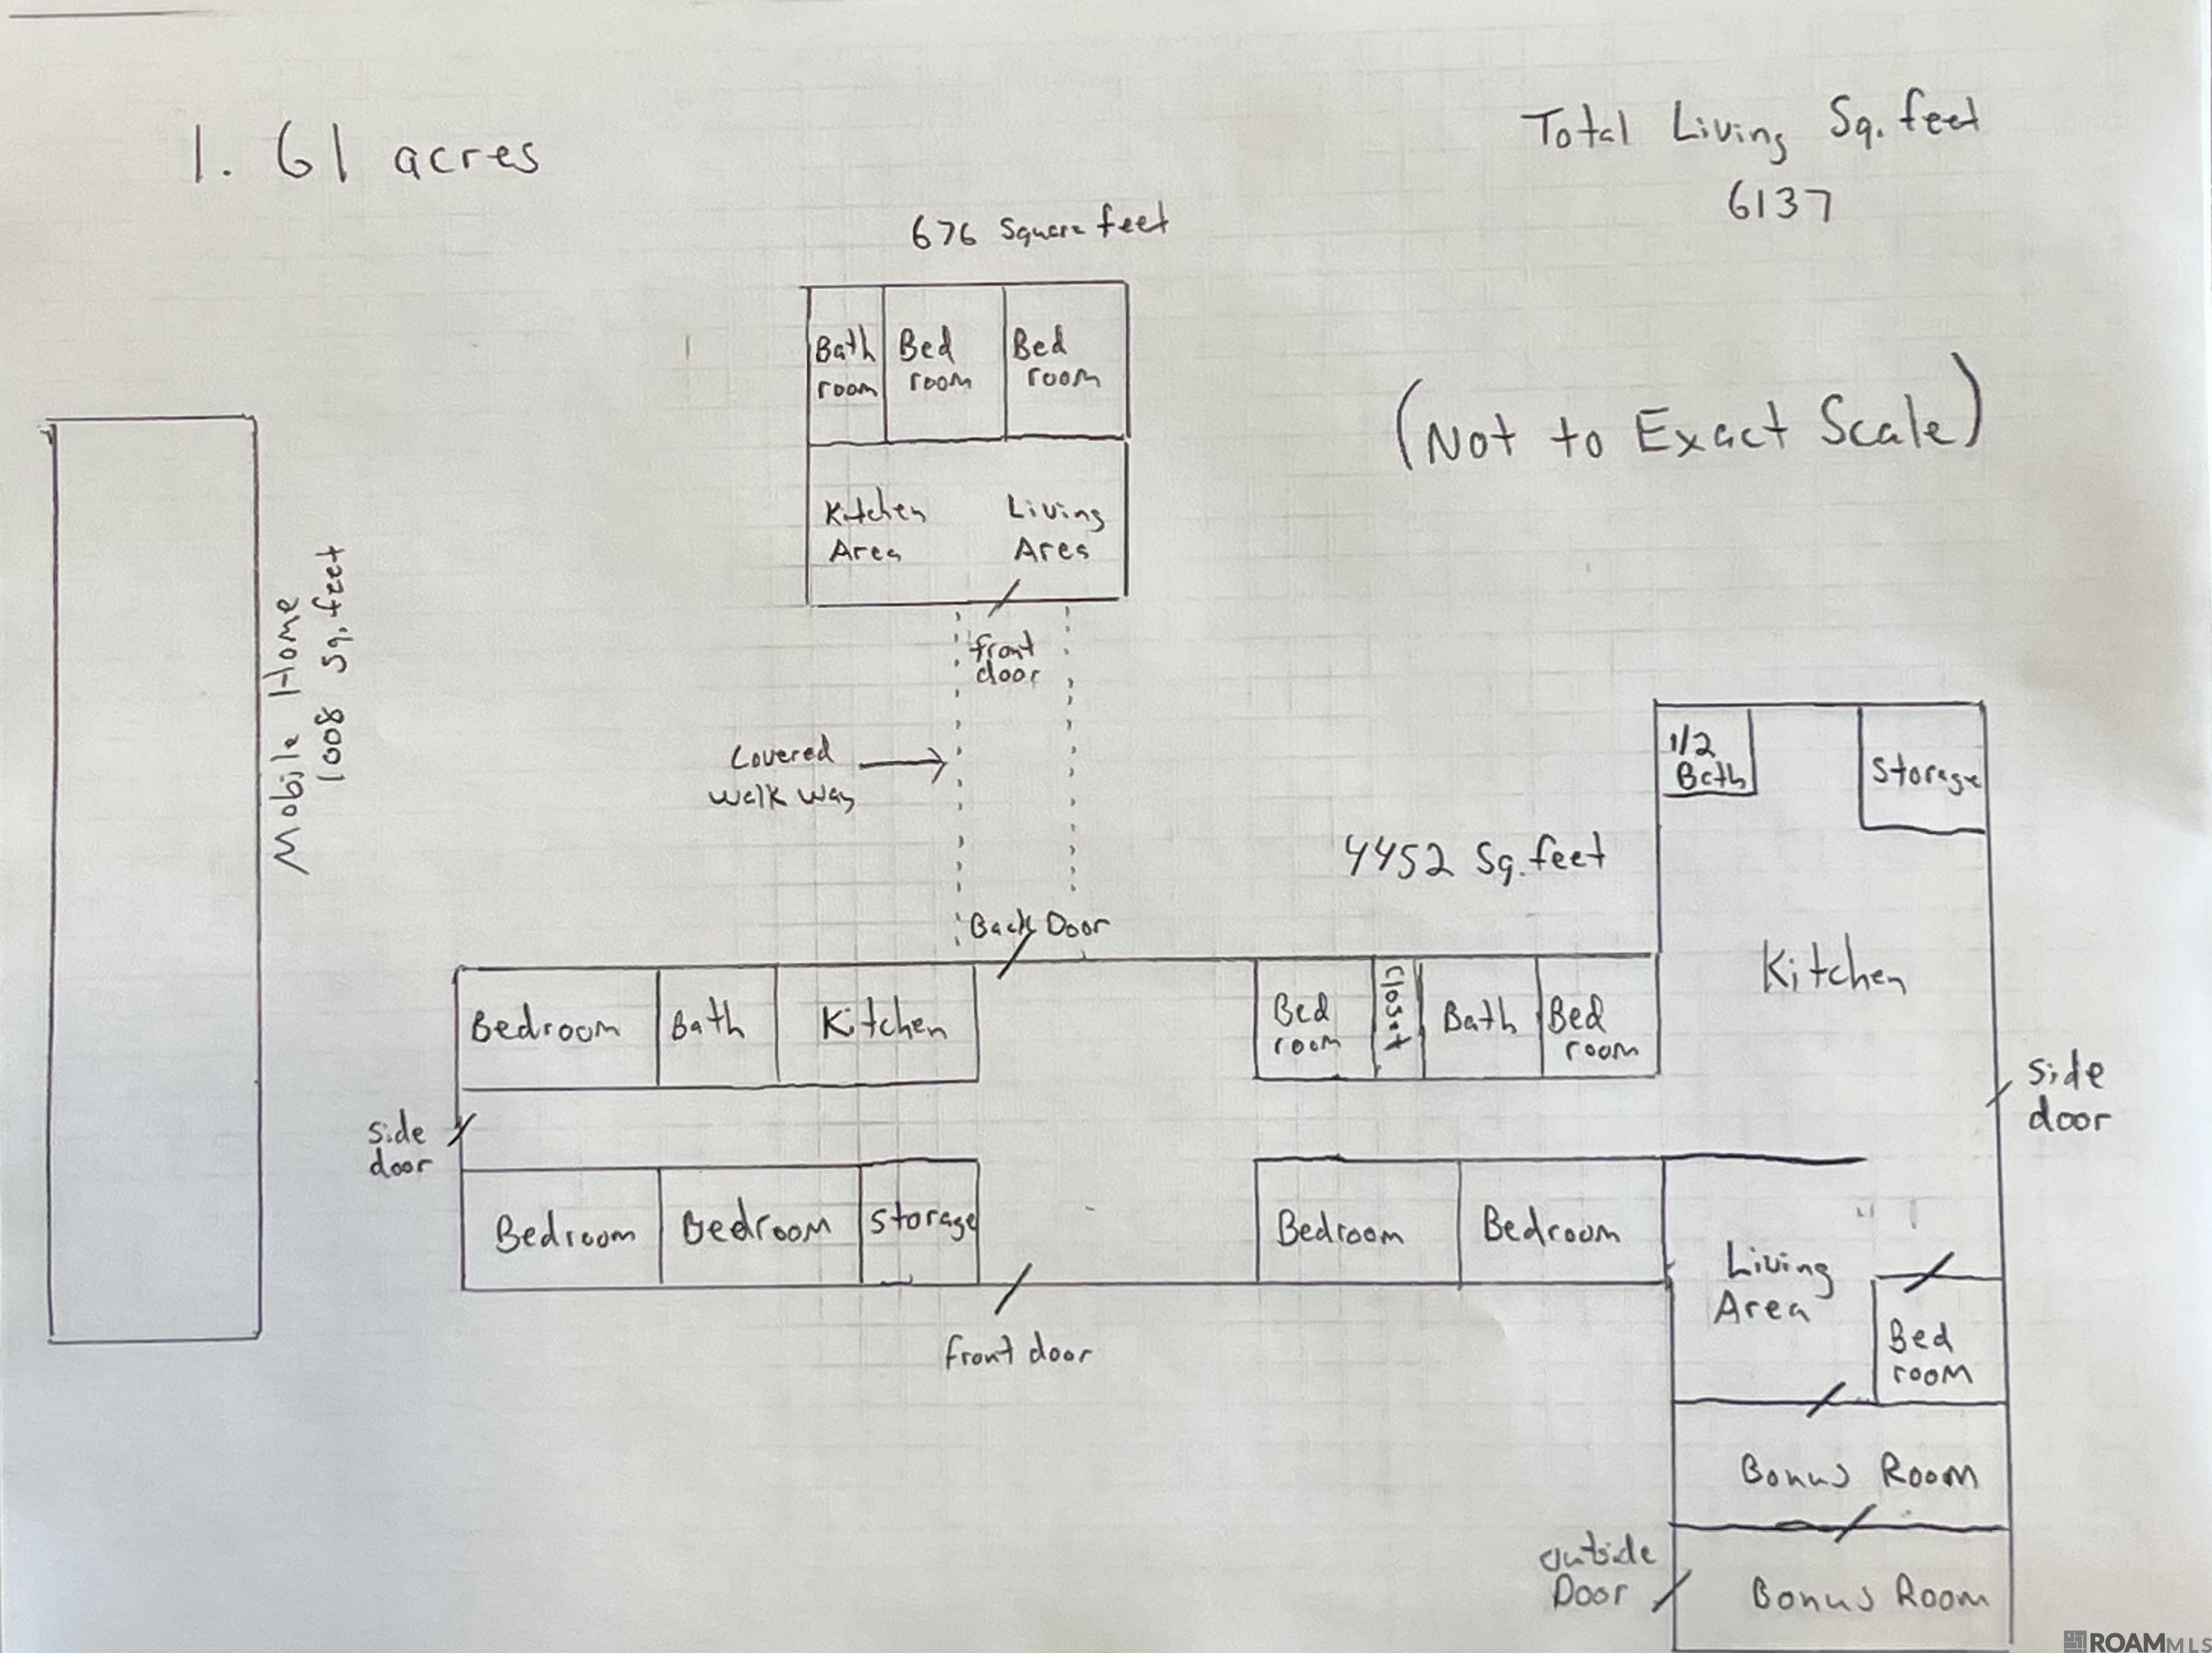 1.61 acres
Total Living Sq. feet
6137
676 Square feet
Bath
room
Bed
room
Bed
room
(Not to Exact Scale)
Kitchen
Area
Living
Area
Mobile Home
1008 Sq. feet
front
door
Covered
walk way
1/2
Bath
Storage
4452 Sq. feet
Back Door
Kitchen
Bedroom
Bath
Kitchen
Bed
room
closet
Bath
Bed
room
side
door
side
door
Bedroom
Bedroom
Storage
Bedroom
Bedroom
Living
Area
Bed
room
front door
Bonus Room
outside
Door
Bonus Room
ROAM MLS